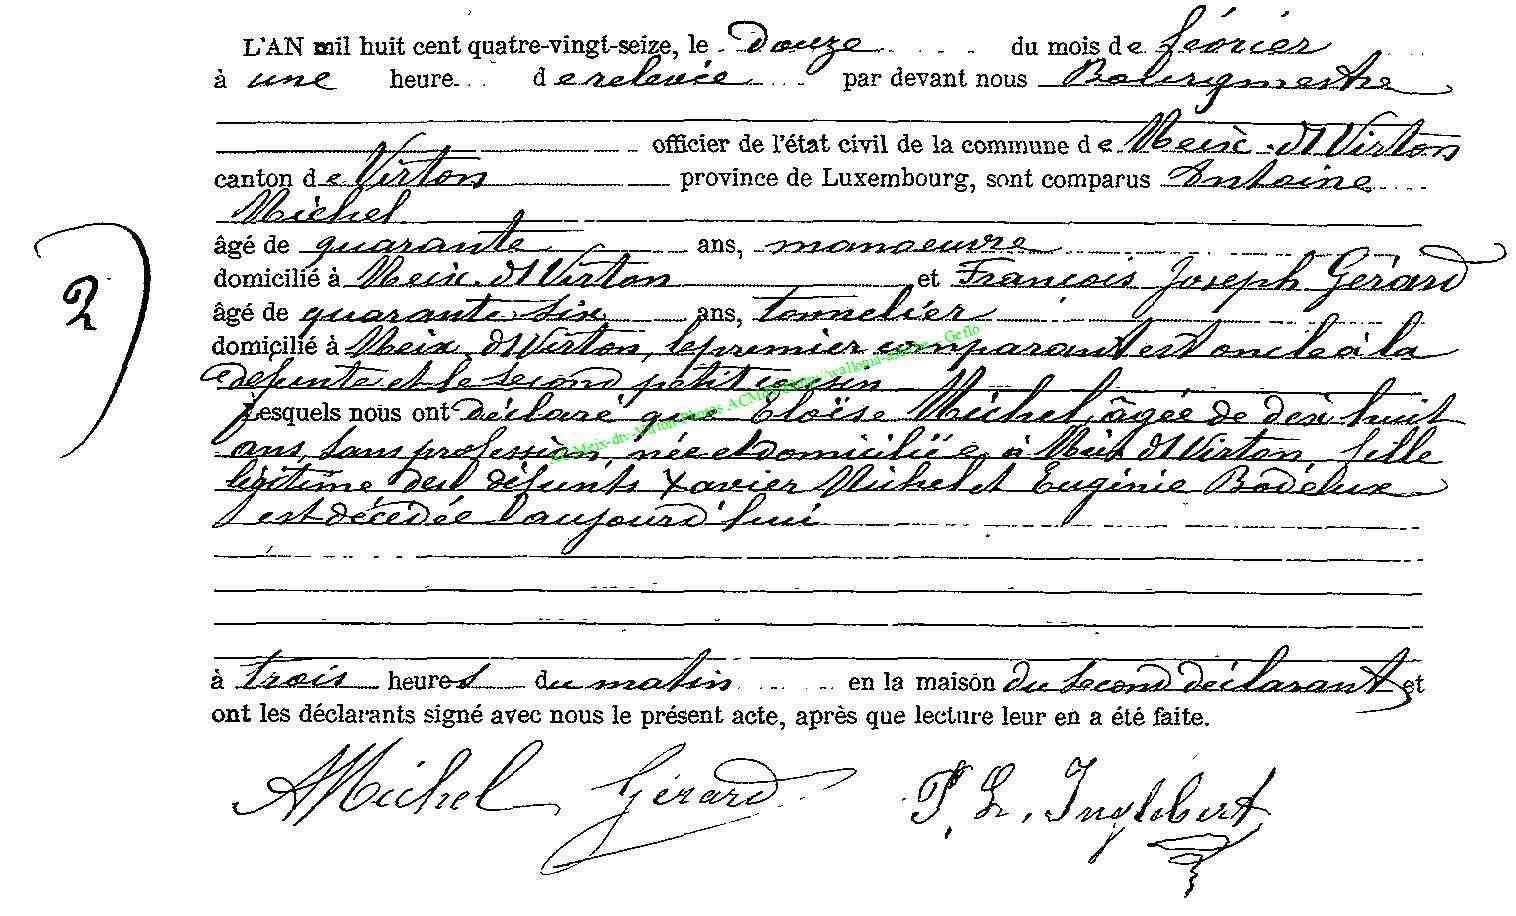 L'AN mil huit cent quatre-vingt-seize, le Douze du mois de février
à une heure de relevée par devant nous Bourgmestre
officier de l'état civil de la commune de Meix-dt Virton
canton de Virton province de Luxembourg, sont comparus Antoine
Michel
âgé de quarante ans, manoeuvre
domicilié à Meix-dt Virton et François Joseph Gérard
âgé de quarante six ans, tonnelier
domicilié à Meix-dt Virton, le premier comparant est oncle à la
défunte et le second petit cousin
2)
Lesquels nous ont déclaré que Eloïse Michel, âgée de dix huit
ans, sans profession, née et domiciliée à Meix dt Virton, fille
légitime des défunts Xavier Michel et Eugénie Bodelux
est décédée aujourd'hui
à trois heures du matin en la maison du second déclarant et
ont les déclarants signé avec nous le présent acte, après que lecture leur en a été faite.
AMichel Gérard P. L. Inglebert